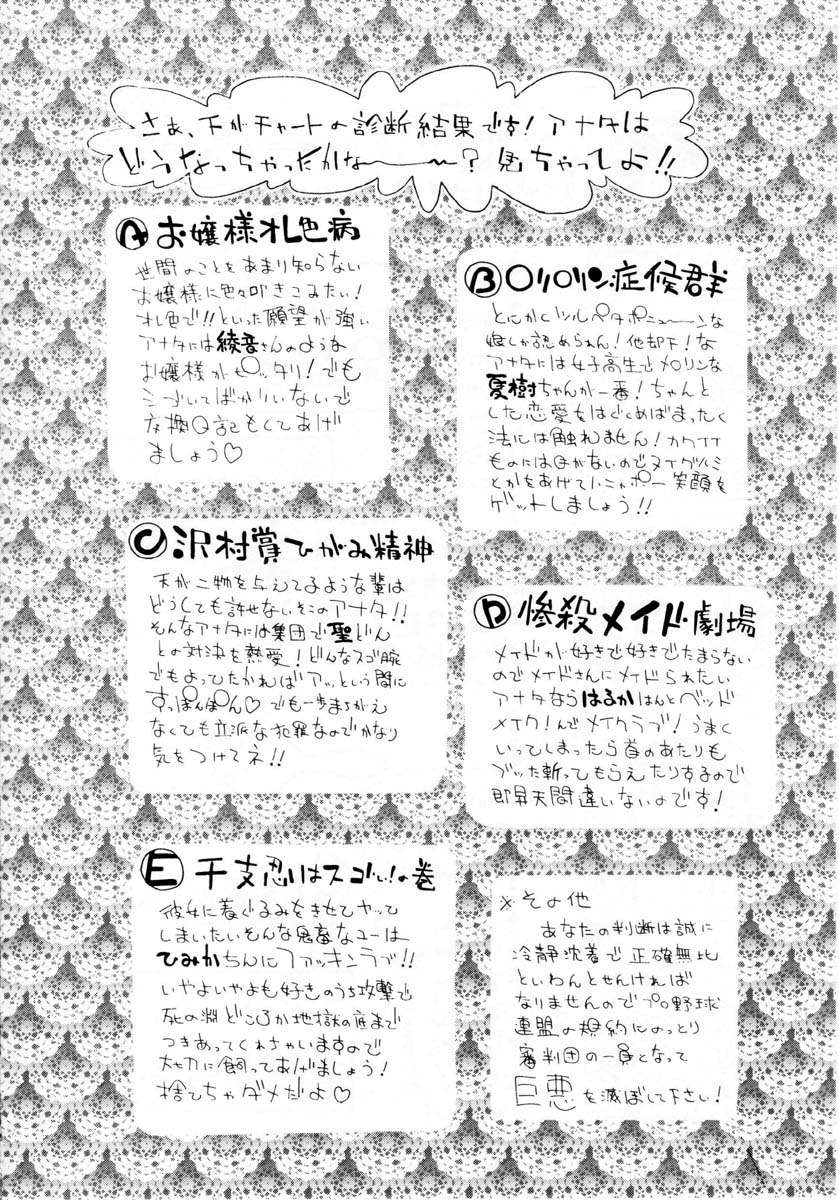 さあ、下がチャートの診断結果です！アナタは
どうなっちゃったかな〜〜？見ちゃってよ!!
Ⓐお嬢様オレ色病
世間のことをあまり知らない
お嬢様に色々叩きこみたい！
オレ色で!!といった願望が強い
アナタには綾音さんのような
お嬢様がピッタリ！でも
こづいてばかりいないで
交換日記もしてあげ
ましょう♡
Ⓑ○リ○リン症候群
とにかくツルペタポニューーンな
娘しか認められん！他却下！な
アナタには女子高生でメロリンな
夏樹ちゃんが一番！ちゃんと
した恋愛をはぐくめばまったく
法には触れません！カワイイ
ものには目がないのでヌイグルミ
とかをあげて 笑顔を
ゲットしましょう!!
Ⓒ沢村賞ひがみ精神
天が二物を与えてるような輩は
どうしても許せないそこのアナタ!!
そんなアナタには集団で聖どん
との対決を熱愛！どんなスゴ腕
でもよってたかればアッという間に
すっぽんぽん♡でも一歩まちがえ
なくても立派な犯罪なのでかなり
気をつけてネ!!
Ⓓ惨殺メイド劇場
メイドが好きで好きでたまらない
のでメイドさんにメイドられたい
アナタならはるかはんとベッド
メイク！んでメイクラブ！うまく
いってしまったら首のあたりも
ブッた斬ってもらえたりするので
即昇天間違いないのです！
Ⓔ干支忍りはスゴい！の巻
彼女に着ぐるみをきせてヤッて
しまいたいそんな鬼畜なユーは
ひみかちんにファッキンラブ!!
いやよいやよも好きのうち攻撃で
死の淵どころか地獄の底まで
つきあってくれちゃいますので
大切に飼ってあげましょう！
捨てちゃダメだよ♡
※その他
あなたの判断は誠に
冷静沈着で正確無比
といわんとせんければ
なりませんのでプロ野球
連盟の規約にのっとり
審判団の一員となって
巨悪を滅ぼして下さい！